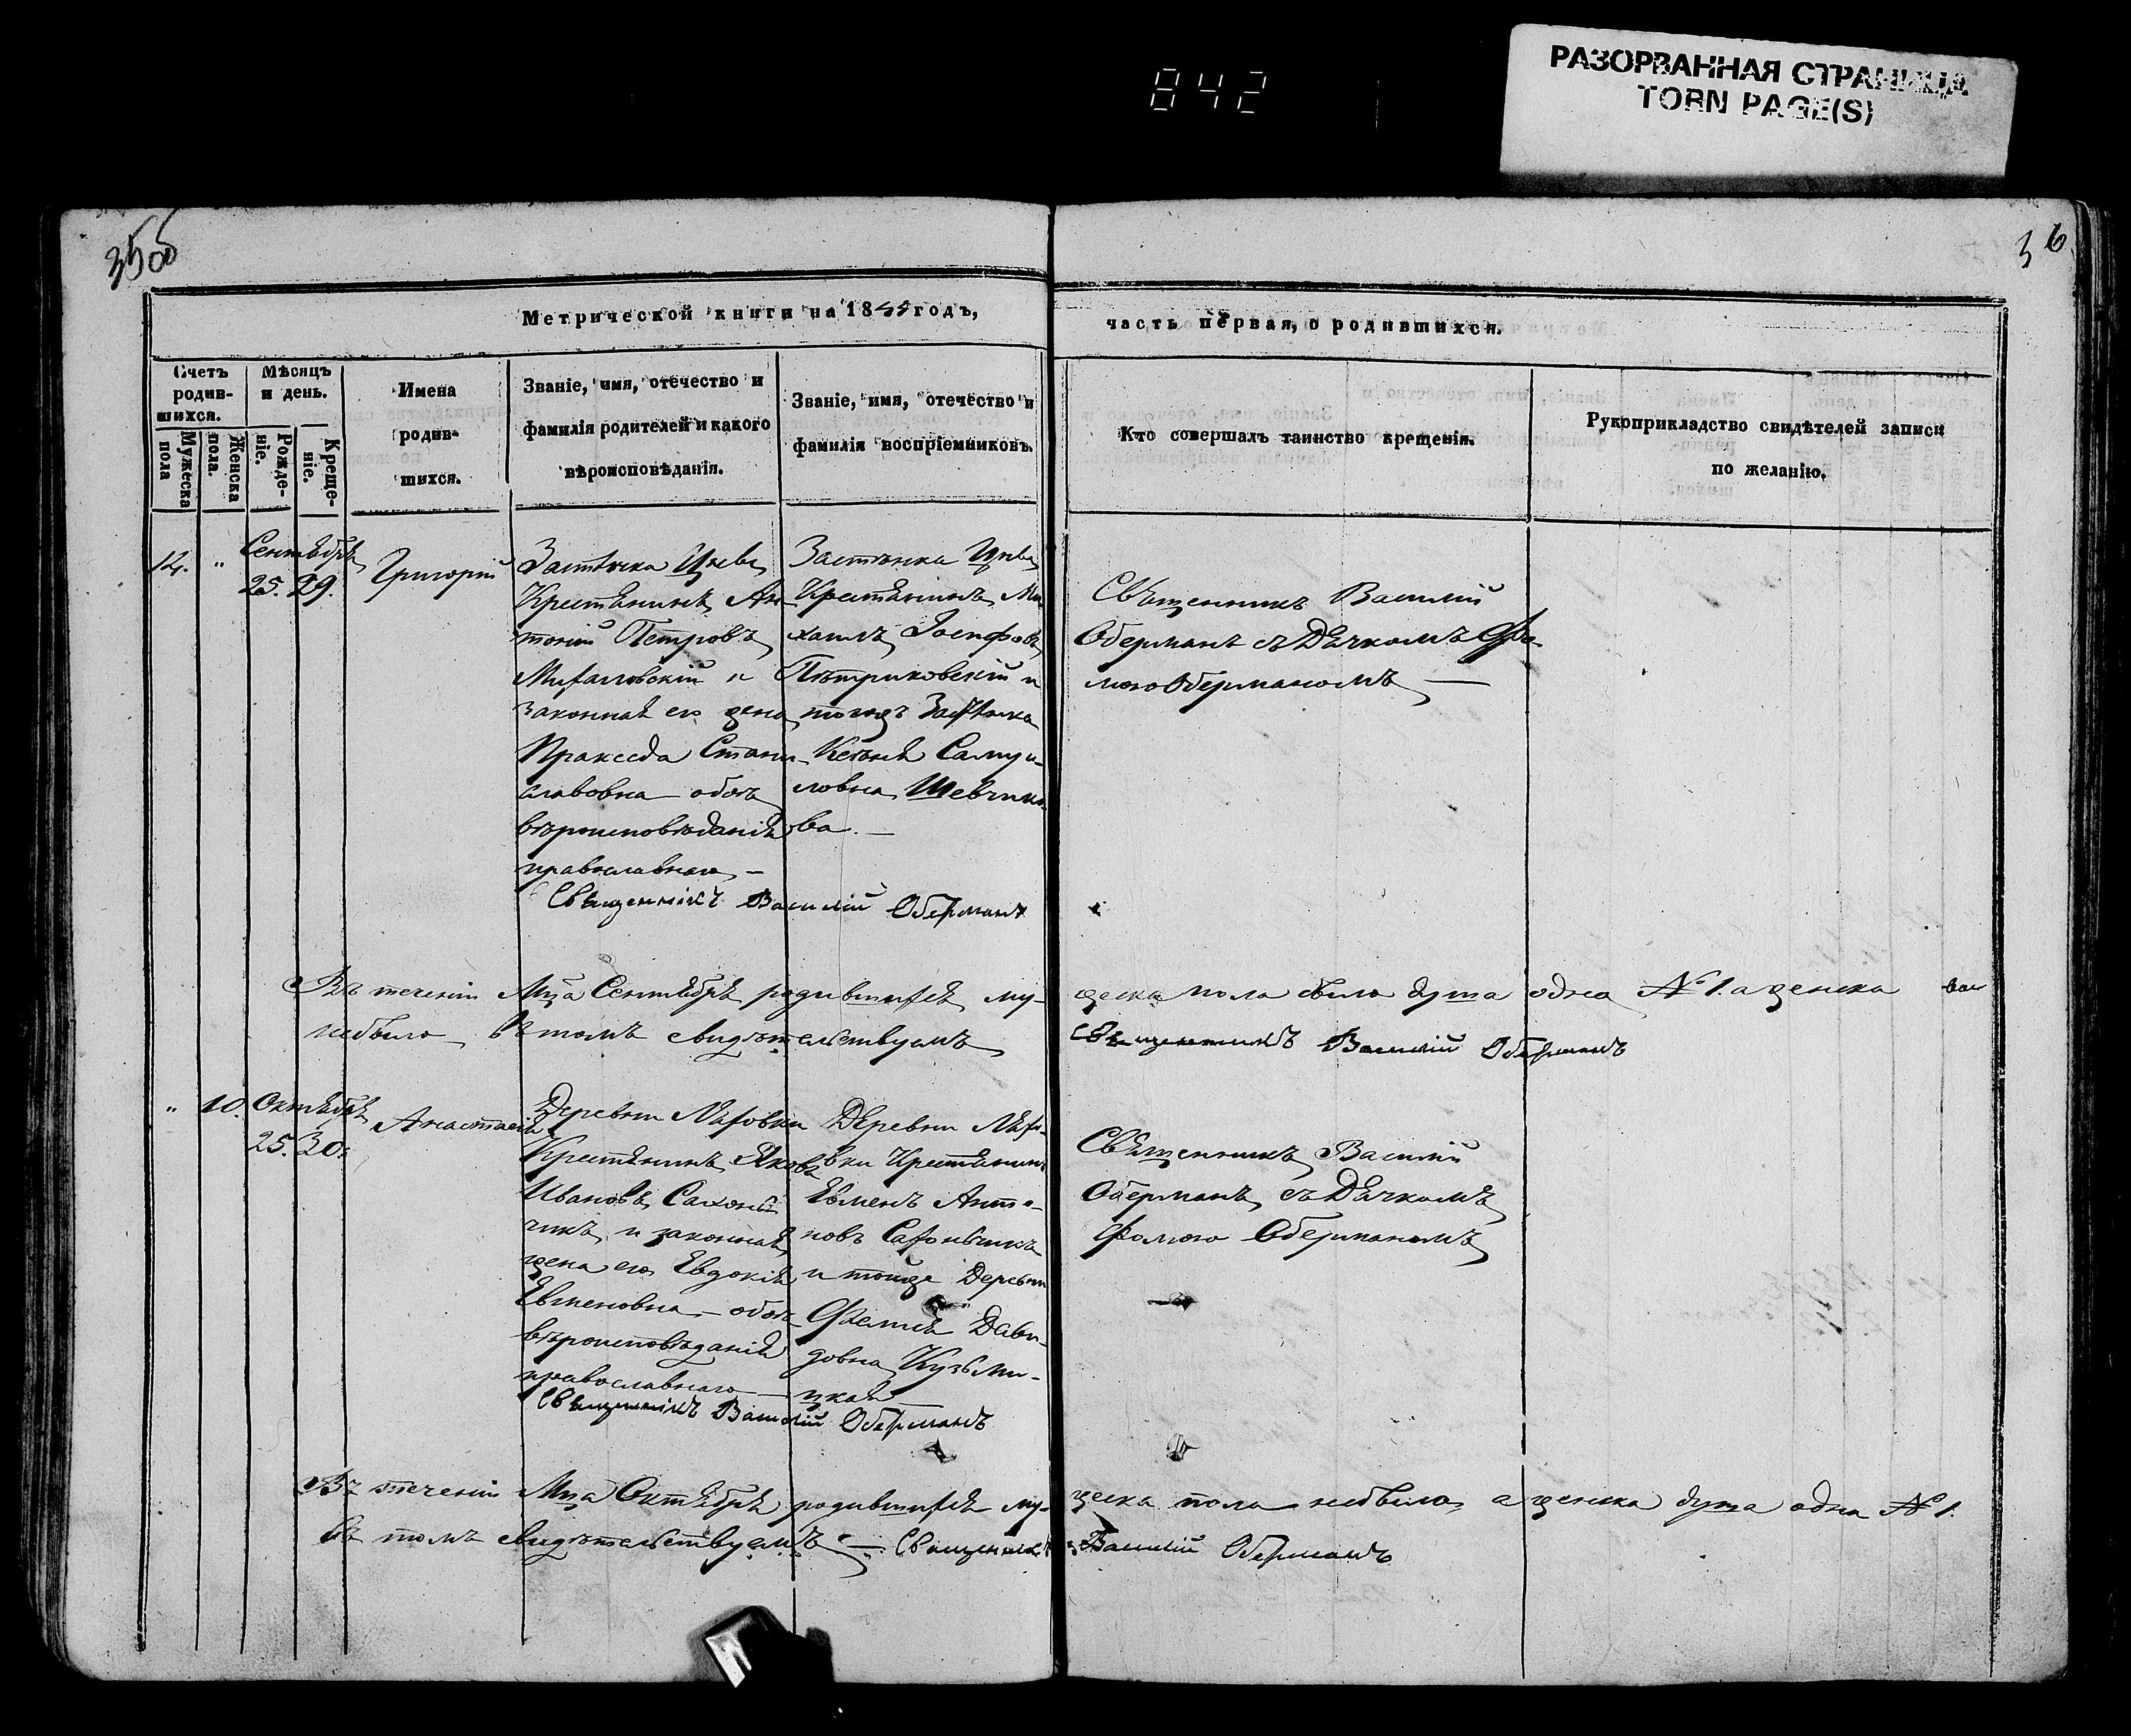 842
РАЗОРВАННАЯ СТРАНИЦА
TORN PAGE(S)
35об
36
Метрической книги на 1844 годъ,
часть первая, о родившихся.
Счетъ родив-шихся.
Мужеска пола
Женска пола.
Мѣсяцъ и день.
Рожде-ніе.
Креще-ніе.
Имена
родив-
шихся.
Званіе, имя, отечество и
фамилія родителей и какого
вѣроисповѣданія.
Званіе, имя, отечество и
фамилія воспріемниковъ.
Кто совершалъ таинство крещенія.
Рукоприкладство свидѣтелей записи
по желанію.
14. "
Сентября
25. 29.
Григорій
Застѣнка
Крестьянинъ Ан-
тоній Петровъ
Михаловскій и
законная его жена
Пракседа Стани-
славовна обоѣ
вѣроисповѣданія
православнаго —
Застѣнка
Крестьянинъ Ми
хаилъ Іосифовъ
Пѣтриковскій и
тогожъ Застѣнка
Ксенія Самуи-
ловна Шевчико
ва. —
Священникъ Василій Оберманъ
Священникъ Василій
Оберманъ съ Дьячкомъ Фо-
мою Оберманомъ —
Въ теченіи Мца Сентября родившихся му-
жеска пола было душа одна № 1. а женска
небыло въ томъ свидѣтельствуемъ
Священникъ Василій Оберманъ
" 10.
Октября
25. 30.
Анастасія
Деревни Ляховки
Крестьянинъ Яковъ
Ивановъ
чикъ и законная
жена его Евдокія
Евменовна — обоѣ
вѣроисповѣданія
православнаго —
Деревни Лѧхо-
вки Крестьянинъ
Евменъ Анто-
новъ Сахончикъ
и тойже Деревни
Давы-
довна Кузьми-
цкая
Священникъ Василій Оберманъ
Священникъ Василій
Оберманъ съ Дьячкомъ
Фомою Оберманомъ
Въ теченіи Мца Октября родившихся му-
жеска пола небыло, а женска душа одна № 1.
въ томъ свидѣтельствуемъ — Священникъ
Василій Оберманъ